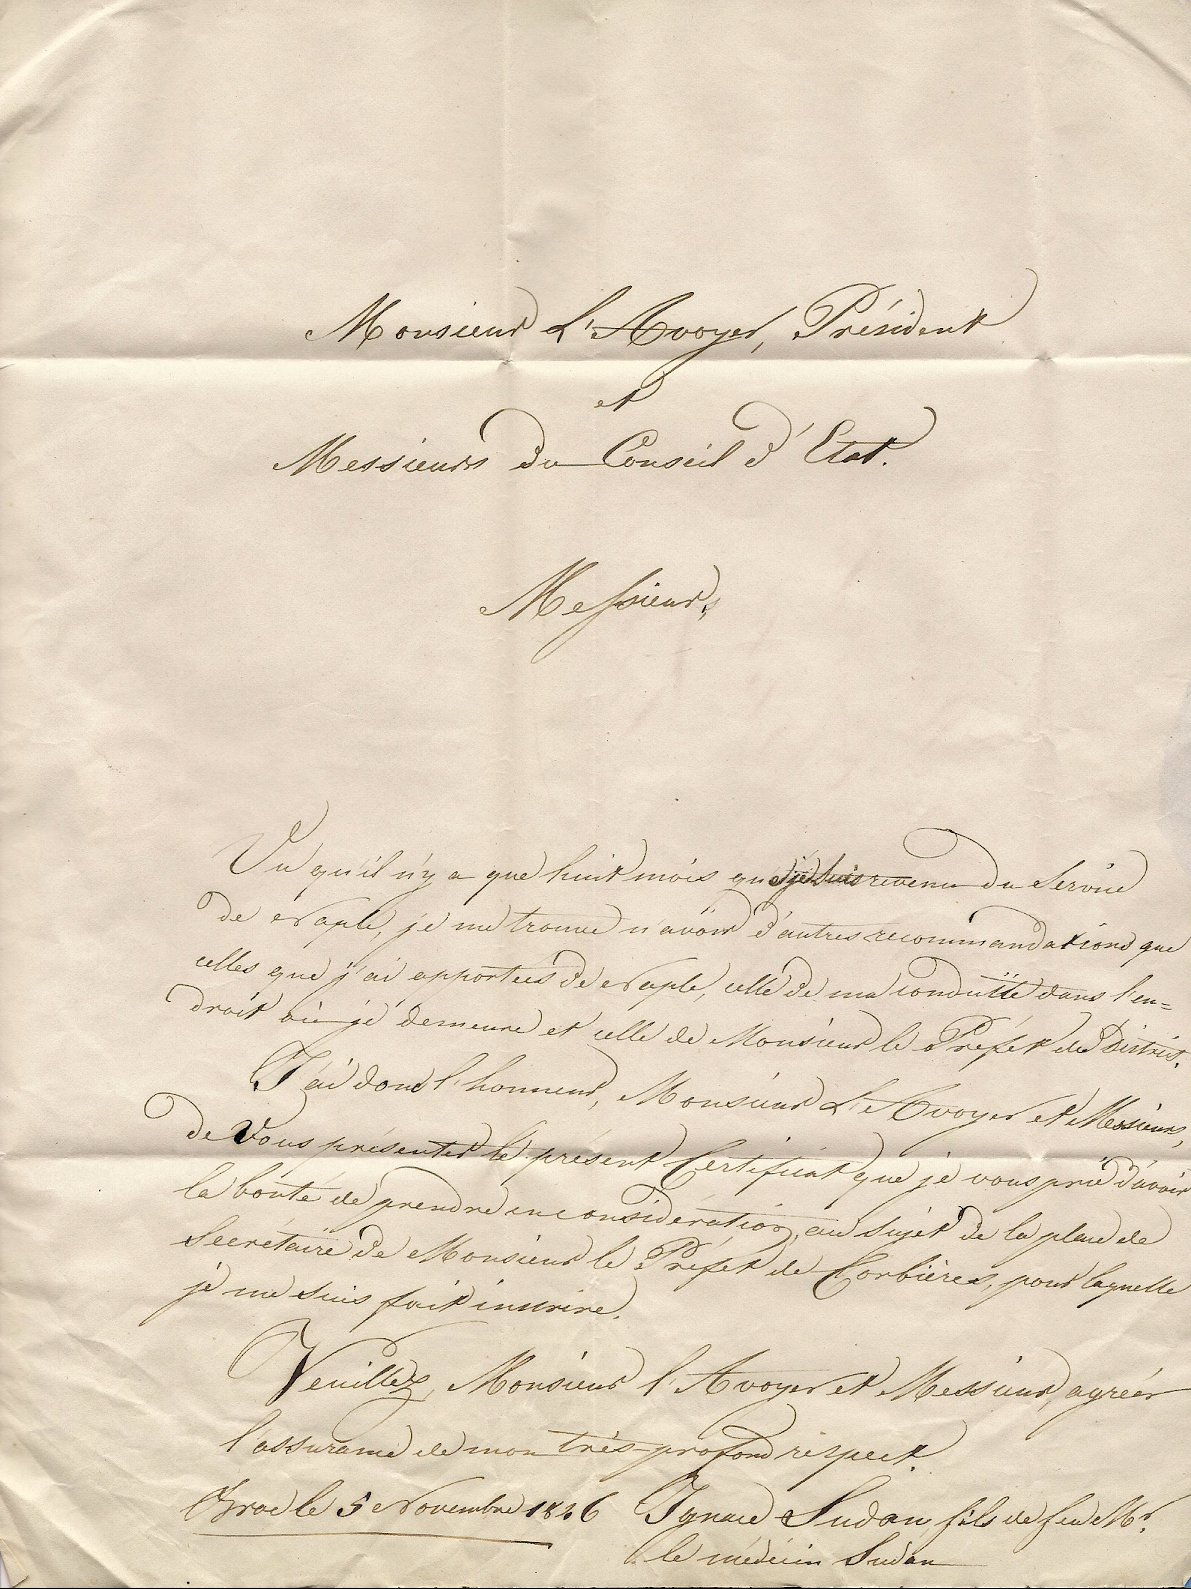 Monsieur L'Avoyer, Président
et
Messieurs du Conseil d'Etat.
Messieurs,
Vu qu'il n'y a que huit mois que je suis revenu du Service
de Naple, je me trouve n'avoir d'autres recommandations que
celles que j'ai apportées de Naple, celle de ma conduitte dans l'en-
droit où je demeure et celle de Monsieur le Préfet du District.
J'ai donc l'honneur, Monsieur L'Avoyer et Messieurs,
de Vous présenter le présent Certificat que je vous prie d'avoir
la bonté de prendre en considération, au sujet de la place de
Secrétaire de Monsieur le Préfet de Corbières, pour laquelle
je me suis fait inscrire.
Veuillez, Monsieur l'Avoyer et Messieurs, agréer
l'assurance de mon très-profond respect.
Broc le 5 Novembre 1846 Ignace Sudan fils de feu Mr.
le médecin Sudan